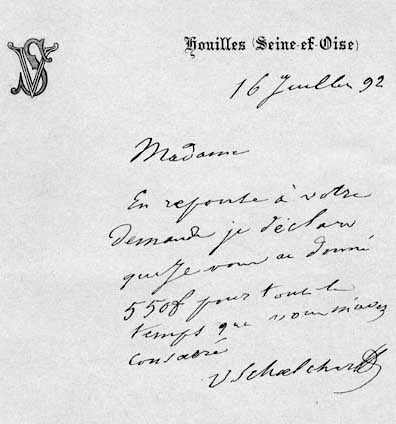 VS
Houilles (Seine-et-Oise)
16 Juillet 92
Madame
En reponse à votre
demande je déclare
que je vous ai donné
550f pour tout le
temps que vous m'avez
consacré
V Schœlcher